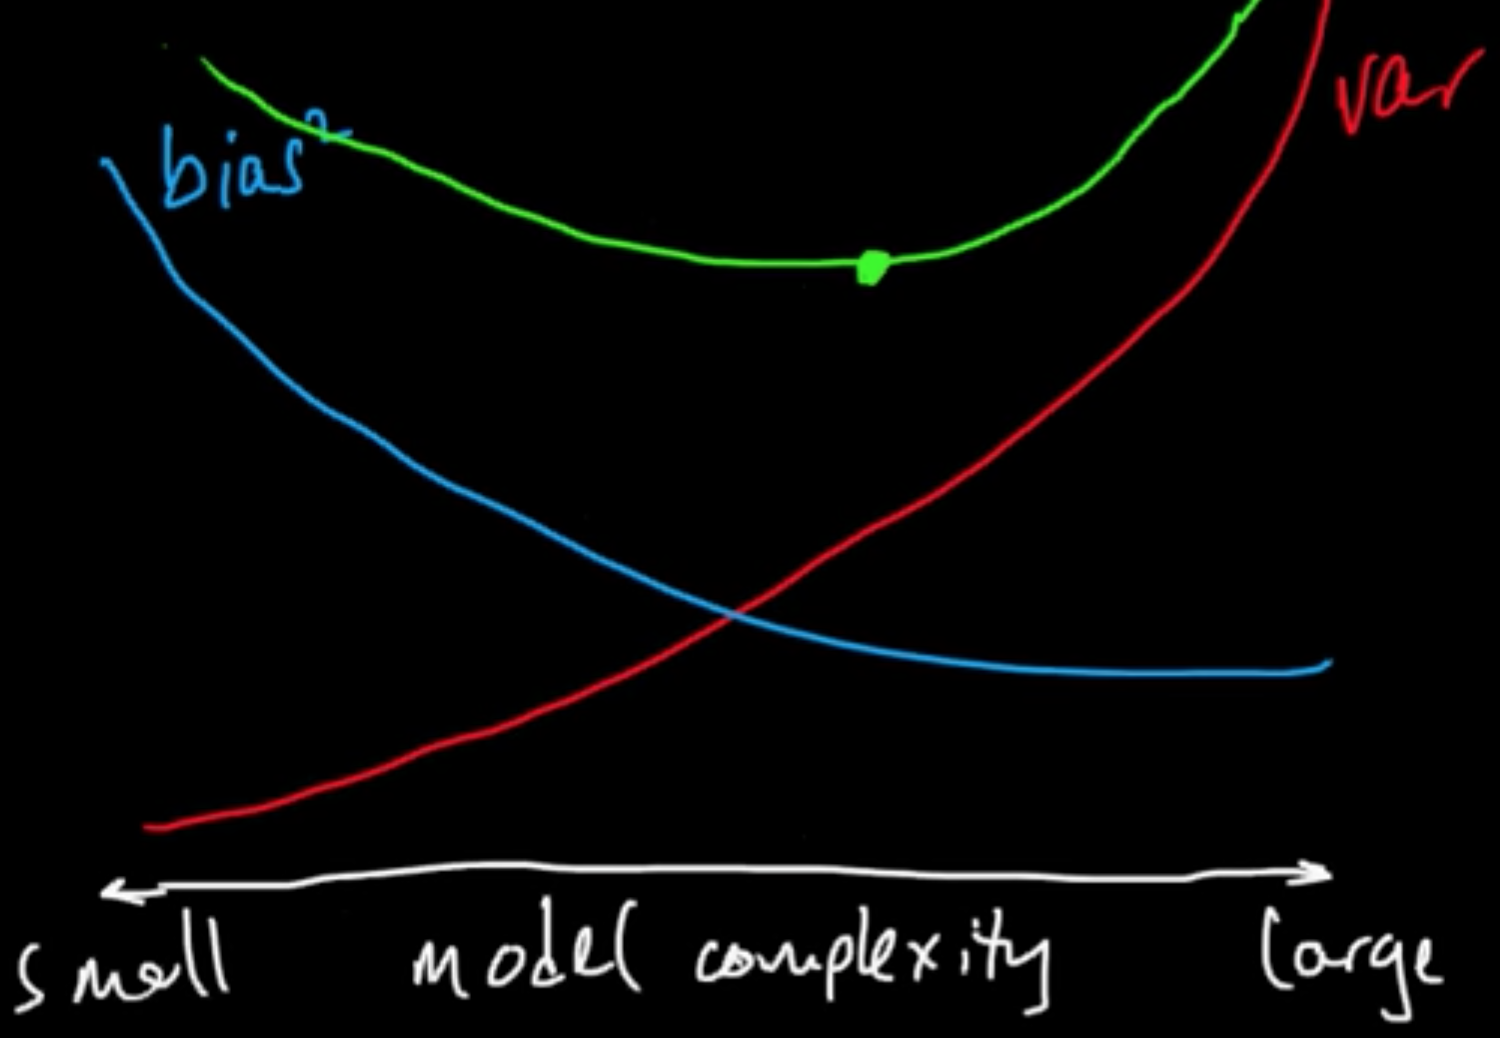 var
bias²
small model complexity large